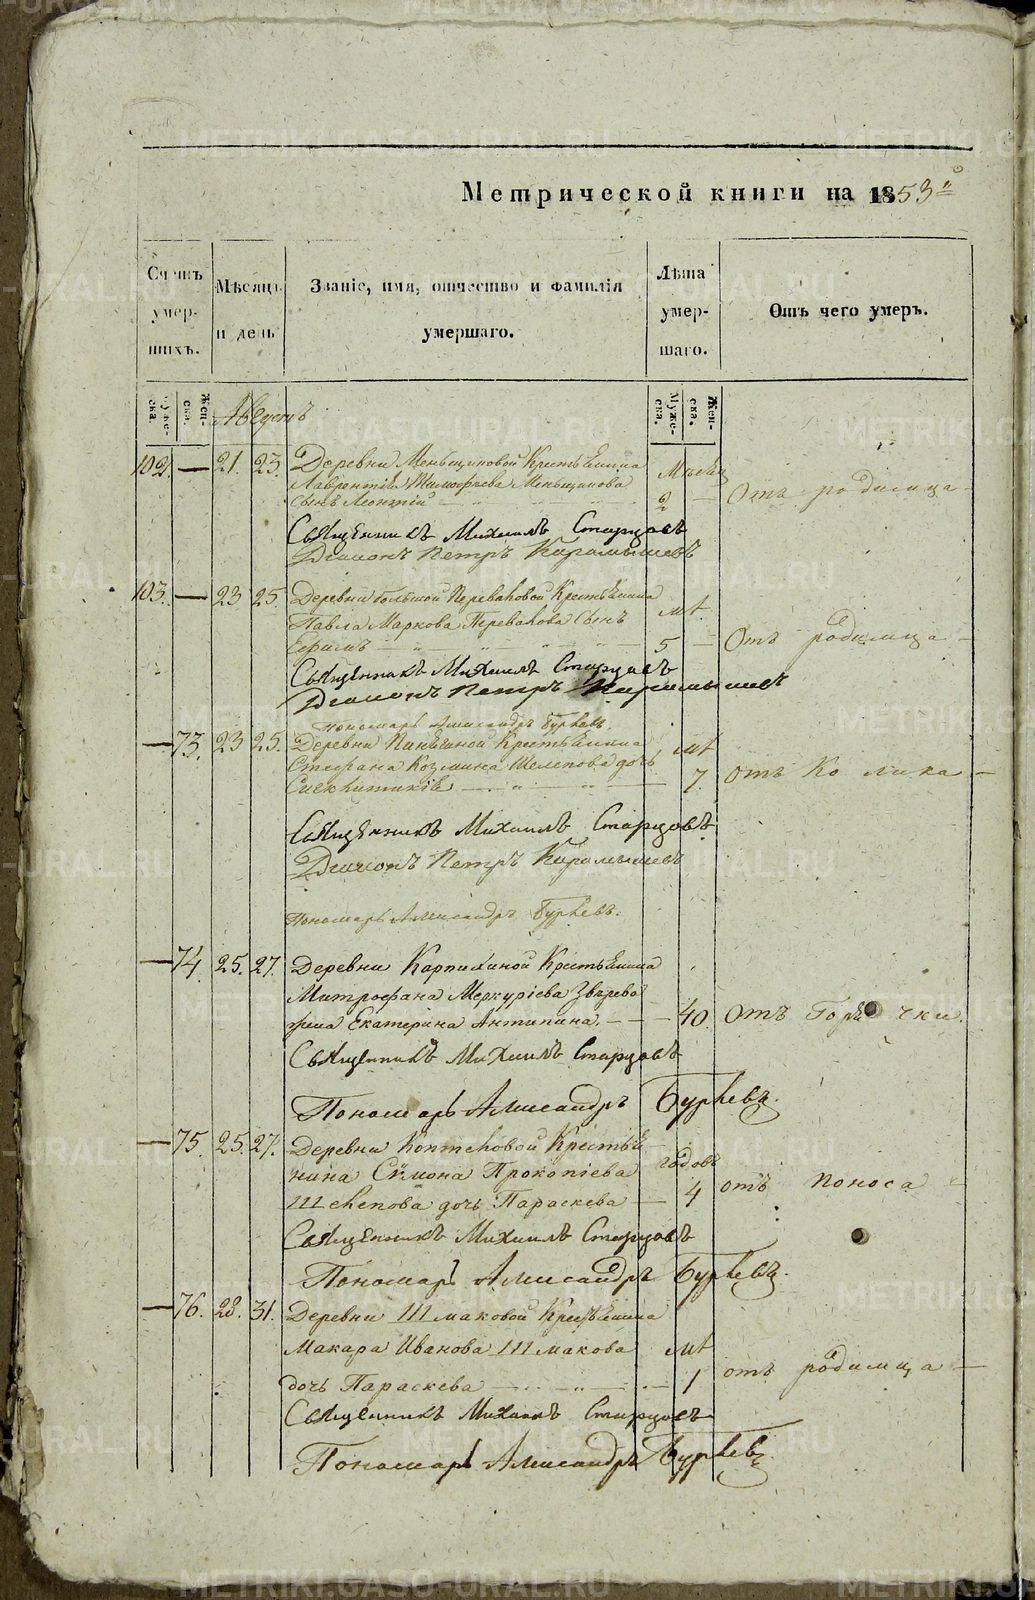 METRIKI.GASO-URAL.RU
Метрической книги на 1853ій
Счетъ умер-шихъ.
Мѣсяцъ и день
Званіе, имя, отчество и фамилія умершаго.
Лѣта умер-шаго.
Отъ чего умеръ.
Муже-ска.
Жен-ска.
Муже-ска.
Жен-ска.
Августъ
102. — 21. 23. Деревни Меньщиковой Крестьянина
Лаврентія Тимофеева Меньщикова
сынъ Леонтій — 2 — Отъ родимца —
Священникъ Михаилъ Старцовъ
Діаконъ Петръ Карамышевъ
103. — 23 25. Деревни большой Переваловой Крестьянина
Павла Маркова Перевалова сынъ
Ефимъ — 5 — Отъ родимца —
Священникъ Михаилъ Старцовъ
Діаконъ Петръ Карамышевъ
Пономарь Александръ Бурлевъ.
— 73. 23 25. Деревни Крестьянина
Стефана Козмина Шелепова дочь
7. отъ —
Священникъ Михаилъ Старцовъ
Діаконъ Петръ Карамышевъ
Пономарь Александръ Бурлевъ.
— 74. 25. 27. Деревни Карпихиной Крестьянина
Митрофана Меркуріева Зверева
жена Екатерина Антипина. — — — 40. Отъ Горячки.
Священникъ Михаилъ Старцовъ
Пономарь Александръ Бурлевъ.
— 75. 25. 27. Деревни Коптеловой Крестья
нина Сѵмона Прокопіева годовъ
Шелепова дочь Параскева — 4 отъ поноса —
Священникъ Михаилъ Старцовъ
Пономарь Александръ Бурлевъ.
— 76. 28. 31. Деревни Шмаковой Крестьянина
Макара Иванова Шмакова
дочь Параскева — 1 отъ родимца —
Священникъ Михаилъ Старцовъ
Пономарь Александръ Бурлевъ